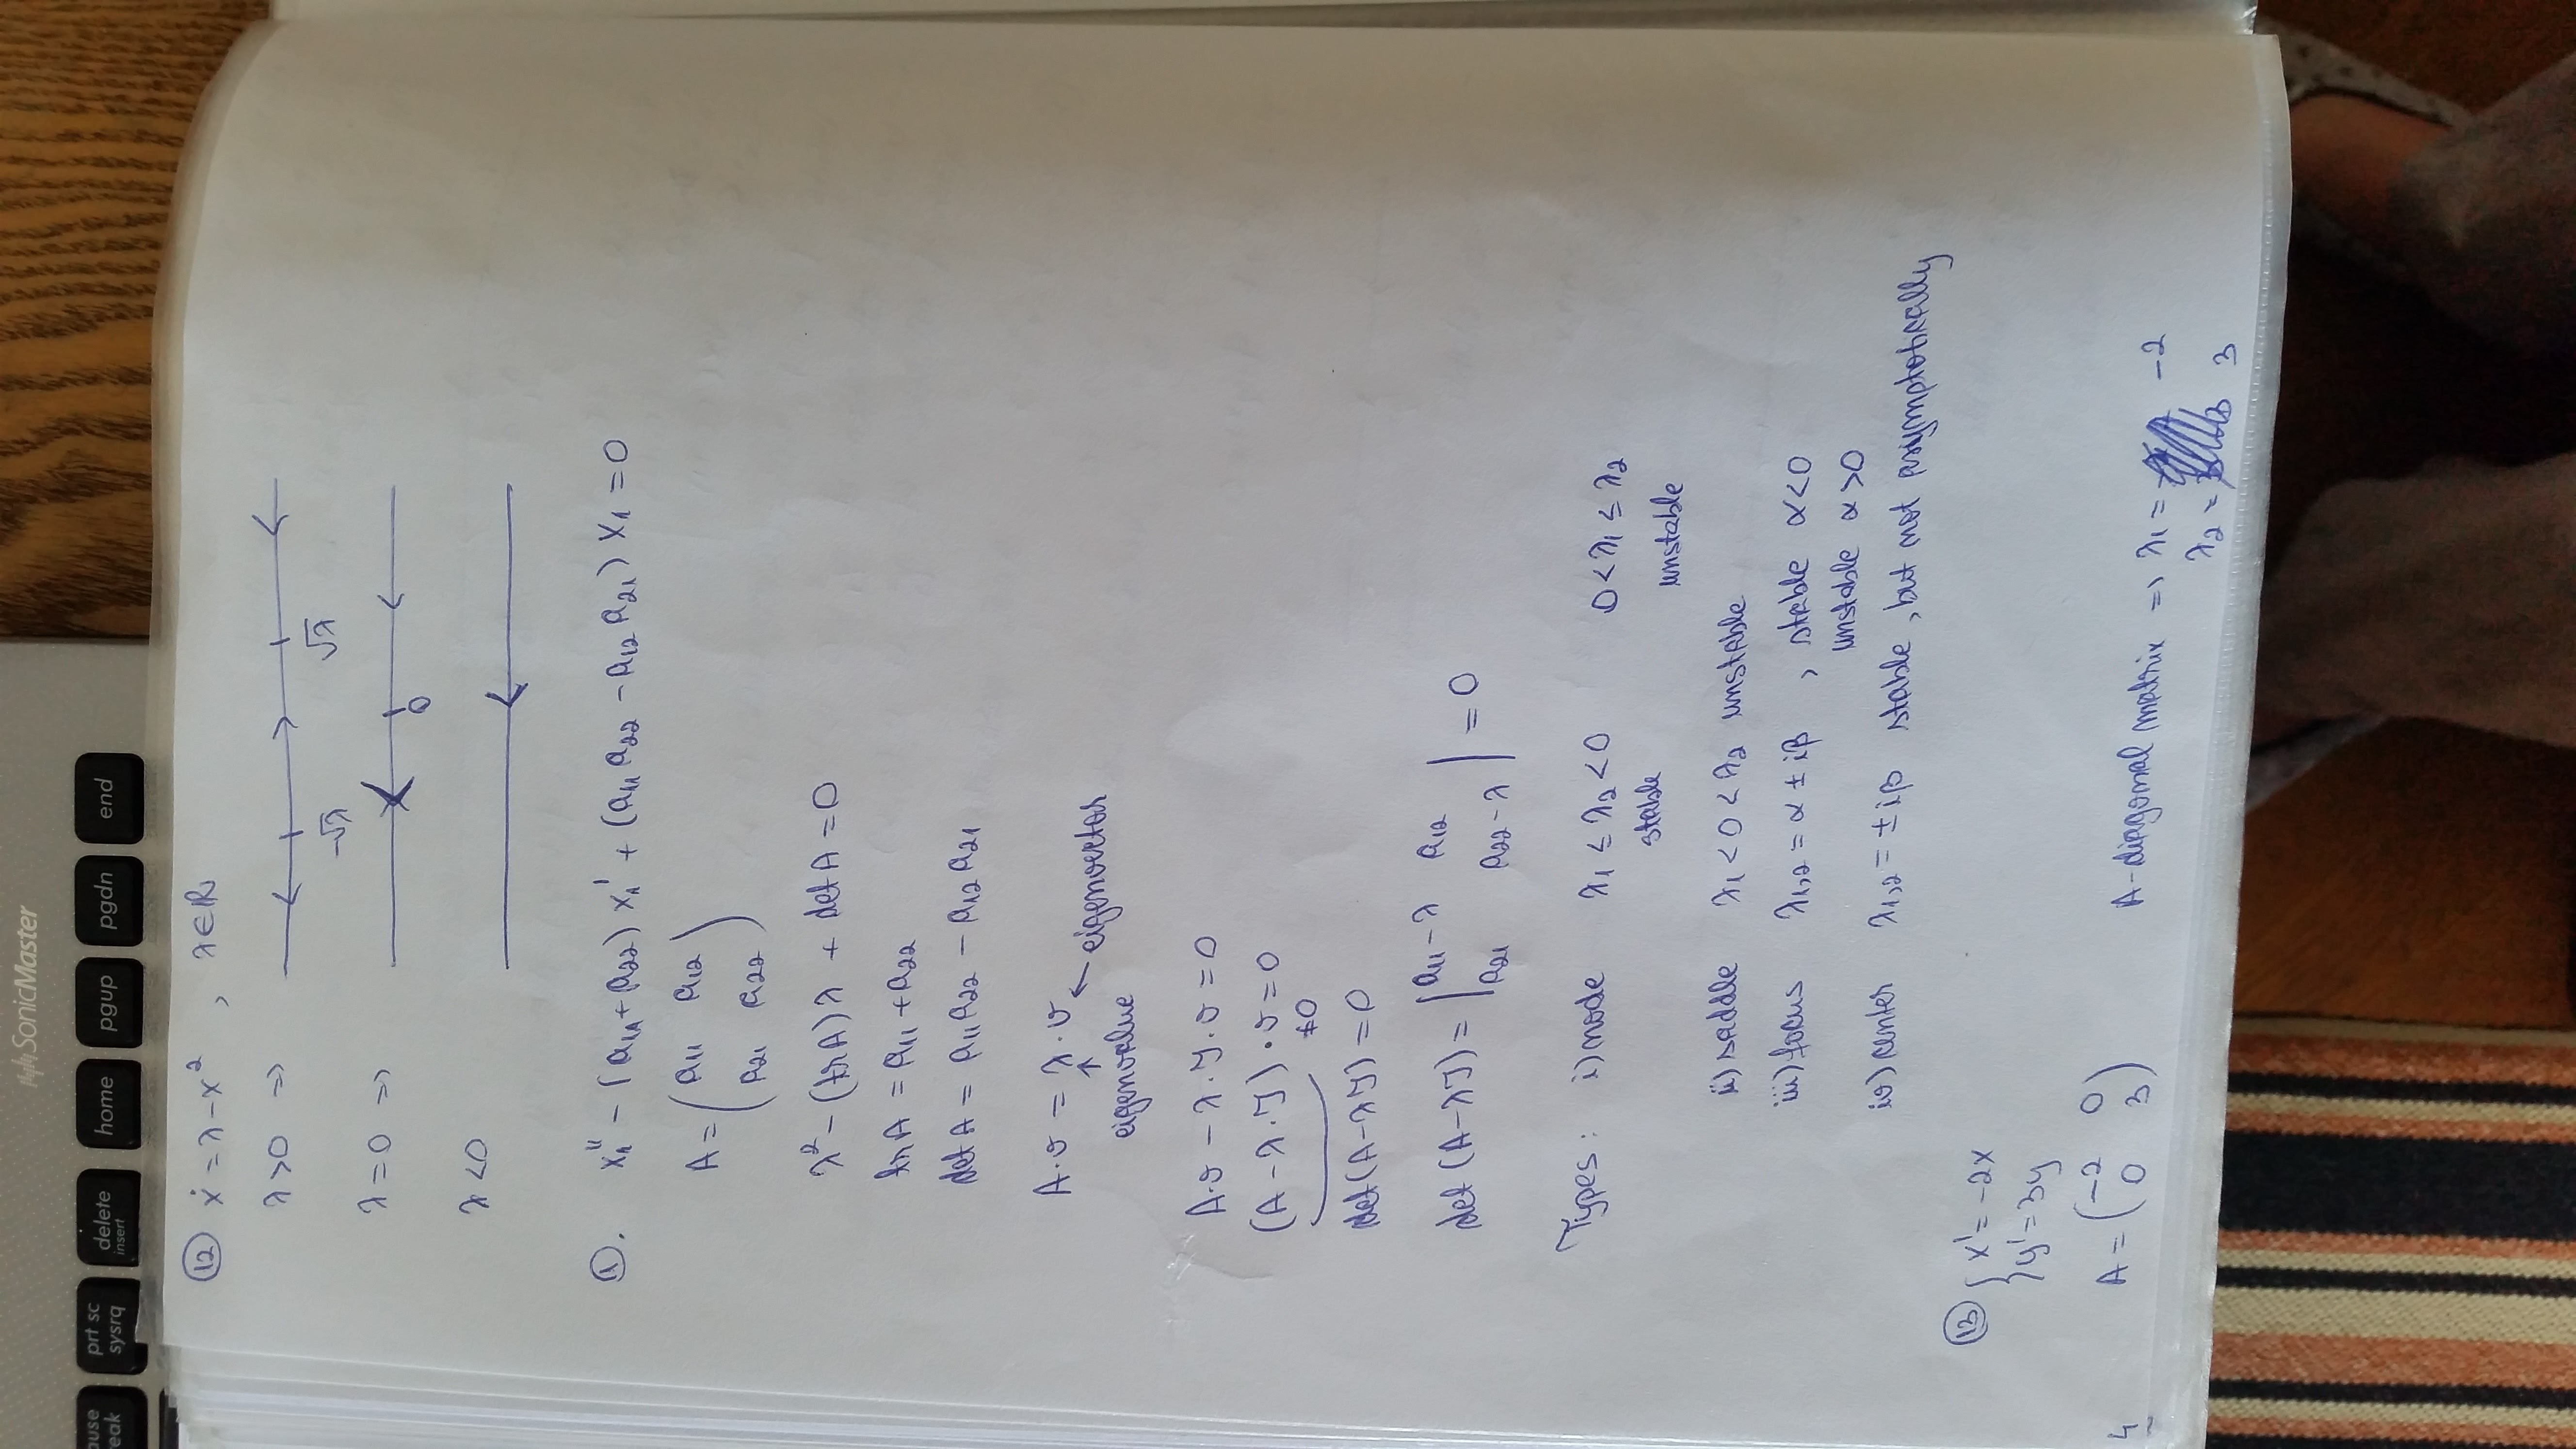 SonicMaster
prt sc
sysrq
delete
insert
home
pgup
pgdn
end
⑫ ẋ = λ - x² , λ∈ℝ
λ>0 =>
-√λ √λ
λ=0 =>
0
λ<0
①. x₁'' - (a₁₁ + a₂₂) x₁' + (a₁₁ a₂₂ - a₁₂ a₂₁) x₁ = 0
A = ( a₁₁ a₁₂
a₂₁ a₂₂ )
λ² - (trA) λ + det A = 0
trA = a₁₁ + a₂₂
det A = a₁₁ a₂₂ - a₁₂ a₂₁
A·v = λ·v
↑ ← eigenvector
eigenvalue
A·v - λ.I.v = 0
(A - λ.I) · v = 0
≠0
det(A - λI) = 0
det (A - λI) = | a₁₁ - λ a₁₂
a₂₁ a₂₂ - λ | = 0
Types: i) node λ₁ ≤ λ₂ < 0 0 < λ₁ ≤ λ₂
stable unstable
ii) saddle λ₁ < 0 < λ₂ unstable
iii) focus λ₁,₂ = α ± iβ , stable α<0
unstable α>0
iv) center λ₁,₂ = ± iβ stable, but not asymptotically
⑬ { x' = -2x
y' = 3y
A = ( -2 0
0 3 )
A-diagonal matrix => λ₁ = -2
λ₂ = 3
4